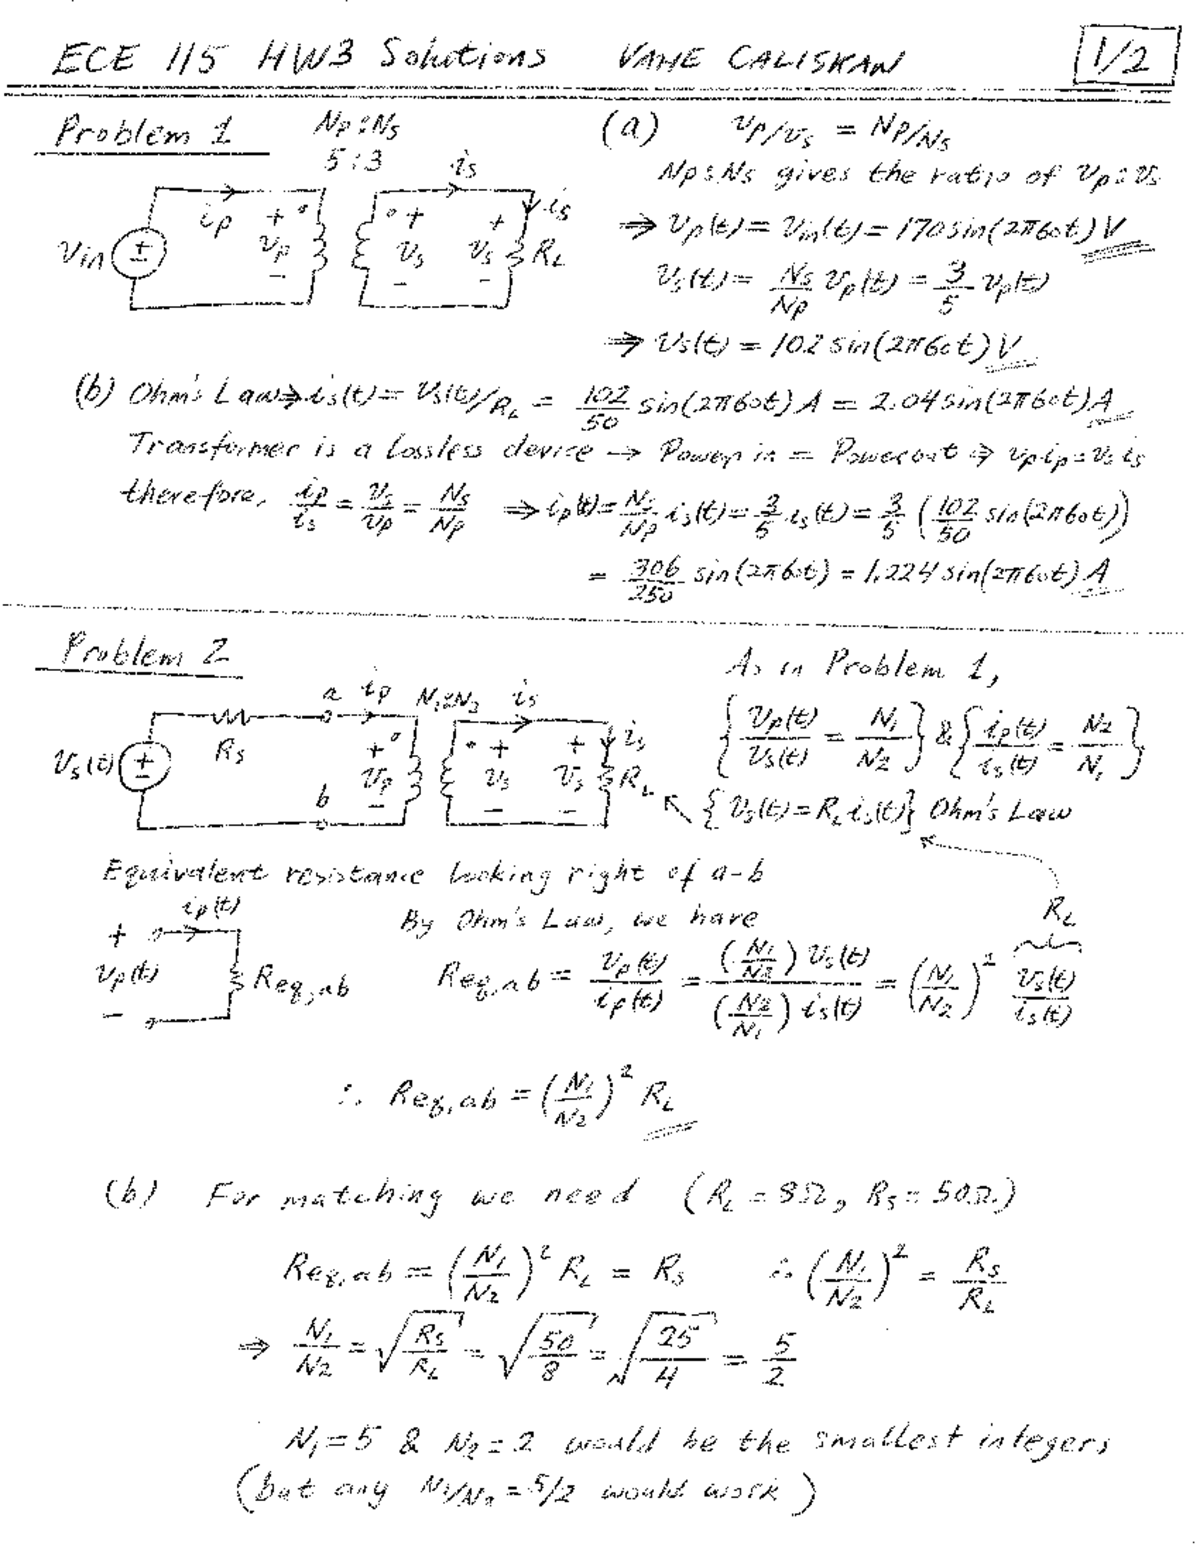 ECE 115 HW3 Solutions VAHE CALISKAN 1/2
Problem 1
Np:Ns
5:3
ip is is
Vin + vp − + vs − + vs − RL
(a) vp/vs = Np/Ns
Np:Ns gives the ratio of vp:vs
⇒ vp(t) = vin(t) = 170 sin(2π60t) V
vs(t) = Ns/Np vp(t) = 3/5 vp(t)
⇒ vs(t) = 102 sin(2π60t) V
(b) Ohm's Law ⇒ is(t) = vs(t)/RL = 102/50 sin(2π60t) A = 2.04 sin(2π60t) A
Transformer is a lossless device → Power in = Power out ⇒ vp ip = vs is
therefore, ip/is = vs/vp = Ns/Np ⇒ ip(t) = Ns/Np is(t) = 3/5 is(t) = 3/5 (102/50 sin(2π60t))
= 306/250 sin(2π60t) = 1.224 sin(2π60t) A
Problem 2
a ip N1:N2 is is
Vs(t) + − Rs + vp − + vs − + vs − RL
b
As in Problem 1,
{vp(t)/vs(t) = N1/N2} & {ip(t)/is(t) = N2/N1}
{vs(t) = RL is(t)} Ohm's Law
Equivalent resistance looking right of a-b
ip(t)
+ vp(t) − Req,ab
By Ohm's Law, we have
RL
Req,ab = vp(t)/ip(t) = (N1/N2) vs(t) / (N2/N1) is(t) = (N1/N2)² vs(t)/is(t)
∴ Req,ab = (N1/N2)² RL
(b) For matching we need (RL = 8Ω, Rs = 50Ω)
Req,ab = (N1/N2)² RL = Rs ∴ (N1/N2)² = Rs/RL
⇒ N1/N2 = √(Rs/RL) = √(50/8) = √(25/4) = 5/2
N1 = 5 & N2 = 2 would be the smallest integers
(but any N1/N2 = 5/2 would work)